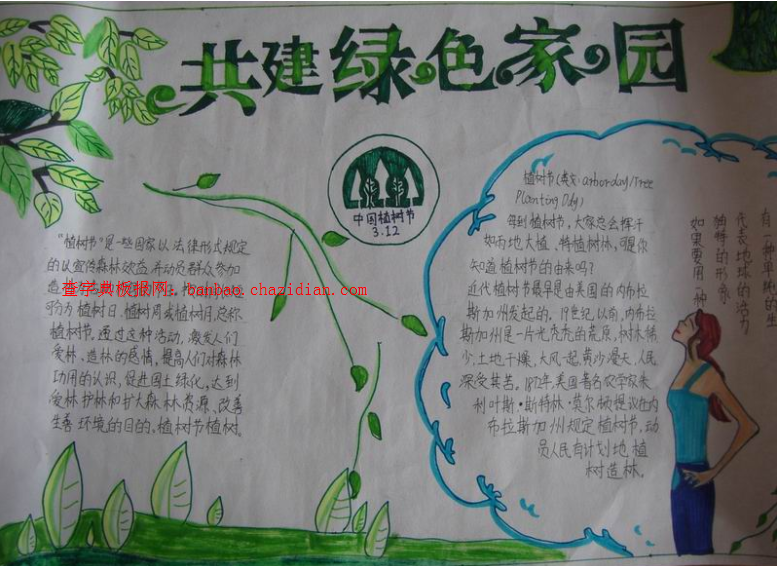 共建绿色家园
中国植树节
3.12
"植树节"是一些国家以法律形式规定
的以宣传森林效益,并动员群众参加
造林
查字典板报网 banbao.chazidian.com
分为植树日、植树周或植树月,总称
植树节。通过这种活动,激发人们
爱林、造林的感情,提高人们对森林
功用的认识,促进国土绿化,达到
爱林护林和扩大森林资源、改善
生态环境的目的。植树节植树
植树节(英文:arborday/Tree
Planting Day)
每到植树节,大家总会挥汗
如雨地大植、特植树林,可是你
知道植树节的由来吗?
近代植树节最早是由美国的内布拉
斯加州发起的。19世纪以前,内布拉
斯加州是一片光秃秃的荒原,树木稀
少,土地干燥,大风一起,黄沙漫天,人民
深受其苦。1872年,美国著名农学家朱
利叶斯·斯特林·莫尔顿提议在内
布拉斯加州规定植树节,动
员人民有计划地植
树造林。
如果要用一种
独特的形象
代表地球的活力